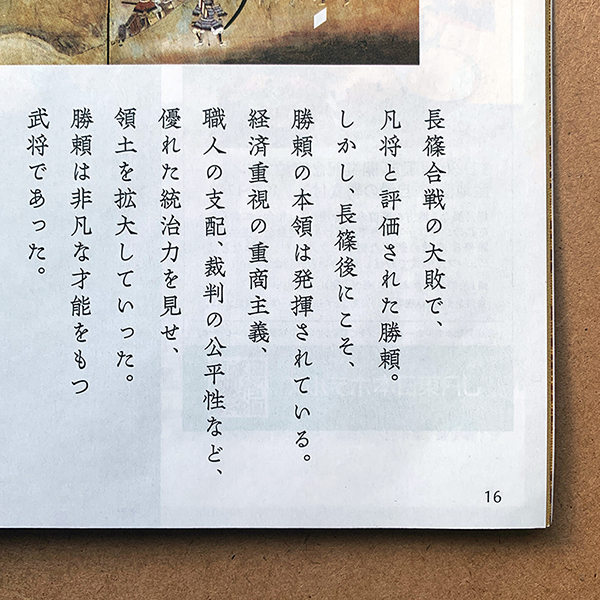 長篠合戦の大敗で、
凡将と評価された勝頼。
しかし、長篠後にこそ、
勝頼の本領は発揮されている。
経済重視の重商主義、
職人の支配、裁判の公平性など、
優れた統治力を見せ、
領土を拡大していった。
勝頼は非凡な才能をもつ
武将であった。
16